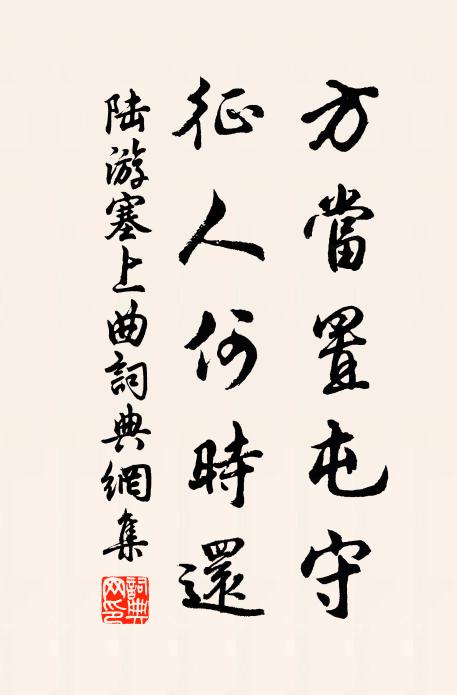 方當置屯守
征人何時還
陆游塞上曲詞典網集
詞典網印